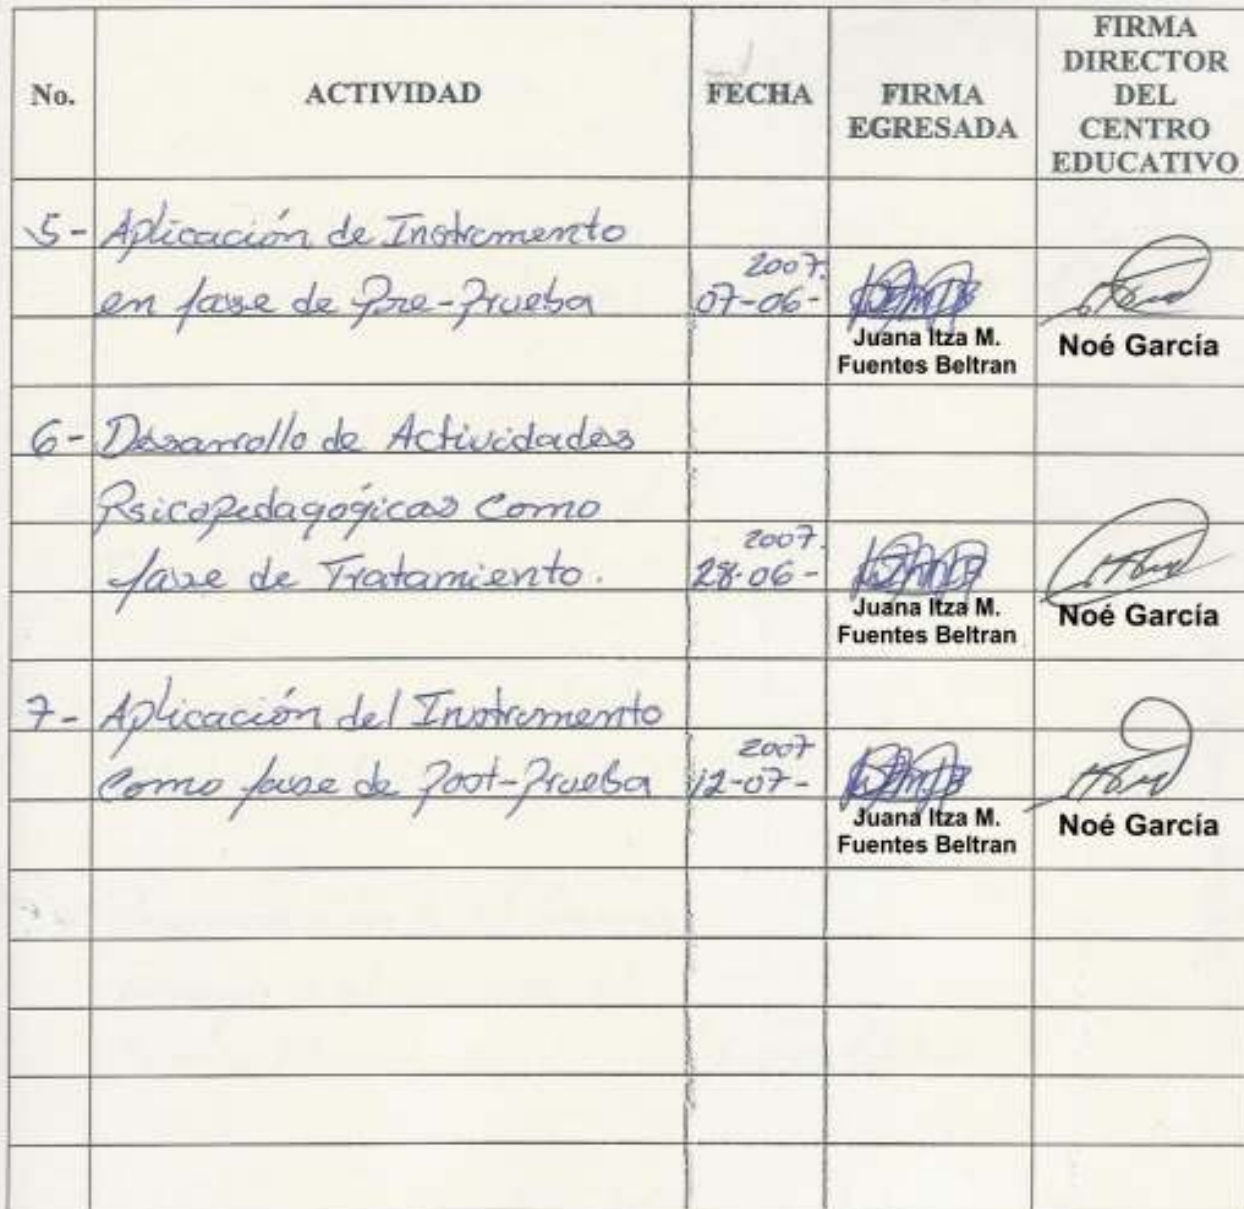 No. ACTIVIDAD FECHA FIRMA EGRESADA FIRMA DIRECTOR DEL CENTRO EDUCATIVO
5- Aplicación de Instrumento
en fase de Pre-Prueba 2007. 07-06-
Juana Itza M. Noé García
Fuentes Beltran
6- Desarrollo de Actividades
Psicopedagógicas Como
fase de Tratamiento. 2007. 28-06-
Juana Itza M. Noé García
Fuentes Beltran
7- Aplicación del Instrumento
Como fase de Post-Prueba 2007 12-07-
Juana Itza M. Noé García
Fuentes Beltran